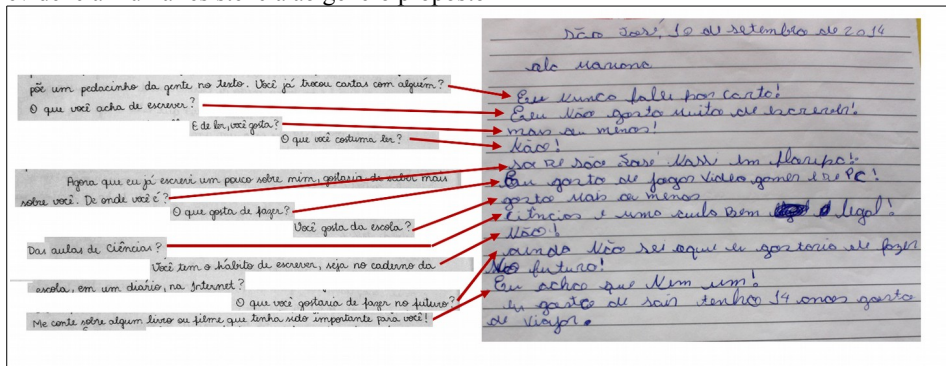 põe um pedacinho da gente no texto. Você já trocou cartas com alguém?
O que você acha de escrever?
E de ler, você gosta?
O que você costuma ler?
Agora que eu já escrevi um pouco sobre mim, gostaria de saber mais
sobre você. De onde você é?
O que gosta de fazer?
Você gosta da escola?
Das aulas de Ciências?
Você tem o hábito de escrever, seja no caderno da
escola, em um diário, na Internet?
O que você gostaria de fazer no futuro?
Me conte sobre algum livro ou filme que tenha sido importante para você!
São José, 10 de setembro de 2014
alo mariana
Eu nunca falei por carta!
Eu Não gosto muito de escrever!
mais ou menos!
Não!
sou de são José Nassi em floripa!
Eu gosto de jogos video games e de PC!
gosto mais ou menos
ciências e uma aula Bem legal!
Não!
ainda Não sei aqui eu gostaria de fazer
No futuro!
Eu acho que Nem um!
eu gosto de sair tenho 14 anos gosto
de viajar.